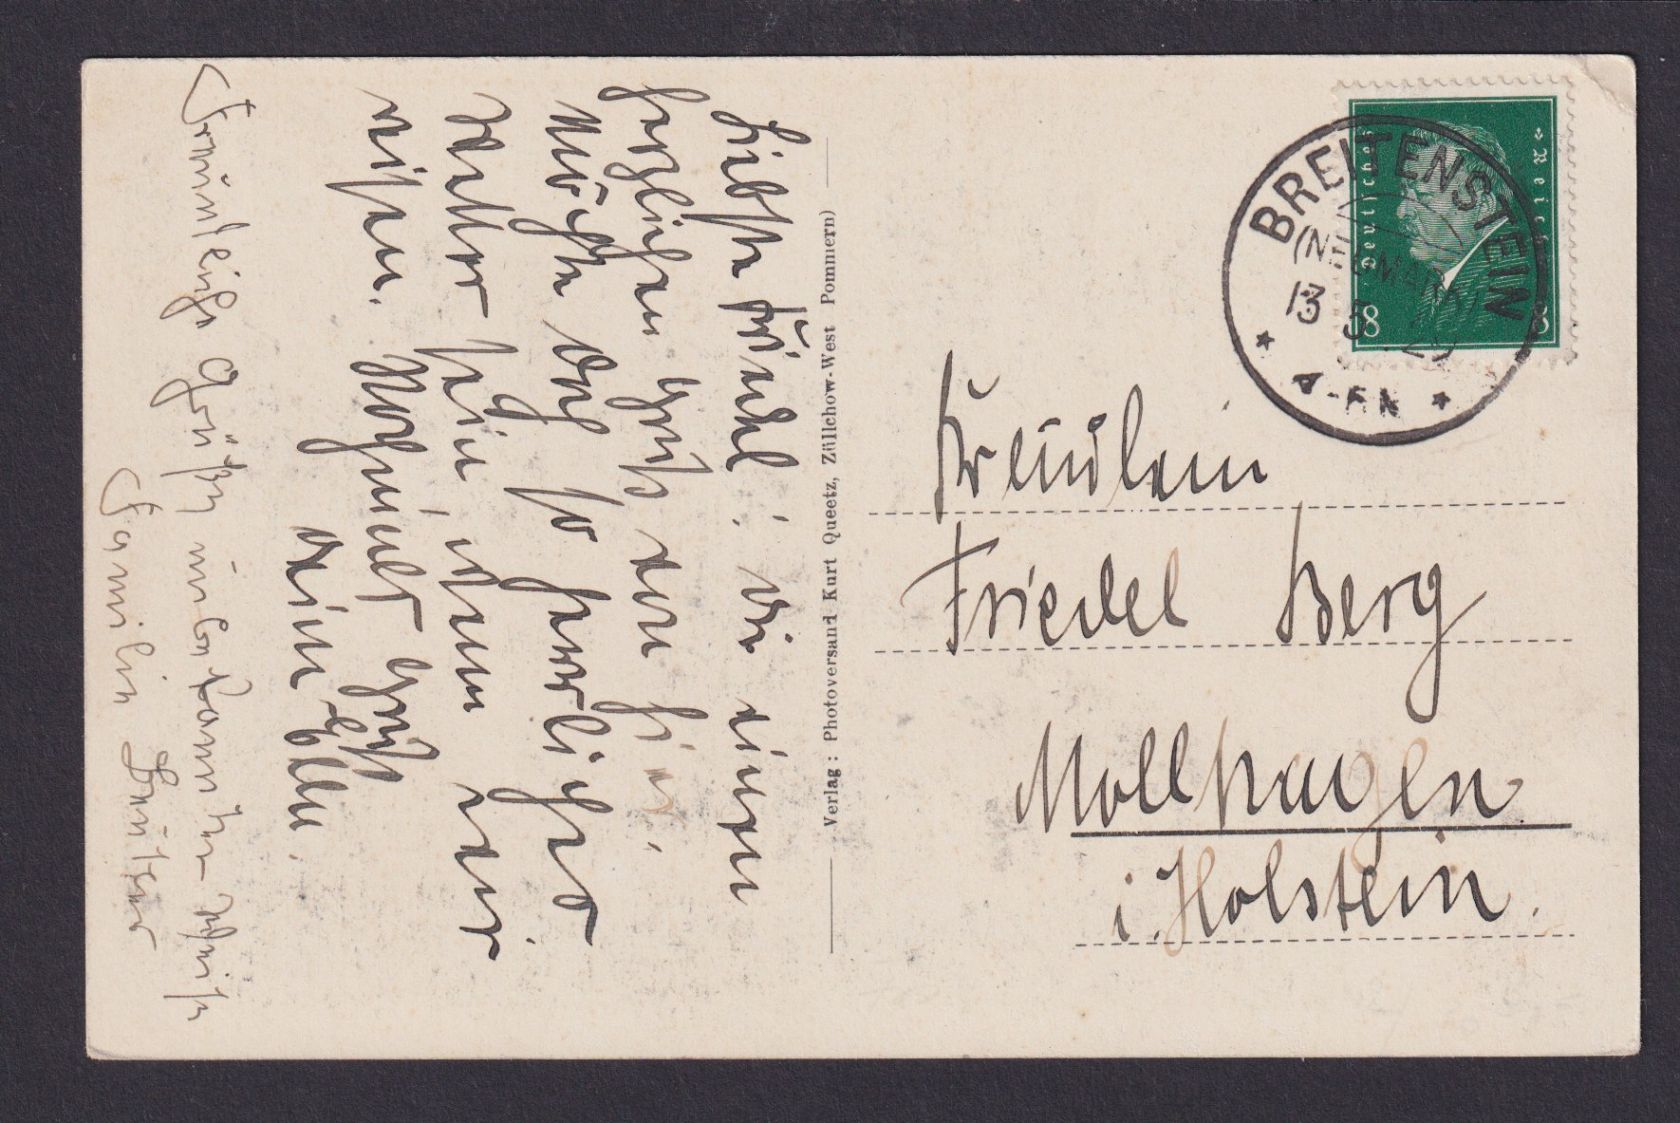 Liebste Friedel! Dir einen
herzlichen Gruß von hier.
Möchte doch so herrliches
Wetter sein, wenn wir
reisen. Nochmals Gruß
Dein
Freundliche Grüße unbekannter Weise
Familie
Verlag: Photoversand Kurt Queetz, Züllchow-West Pommern)
Deutsches Reich
8 8
BREITENSTEIN
(NEUMARK)
13 5 29
Fräulein
Friedel Berg
Mollhagen
i. Holstein.